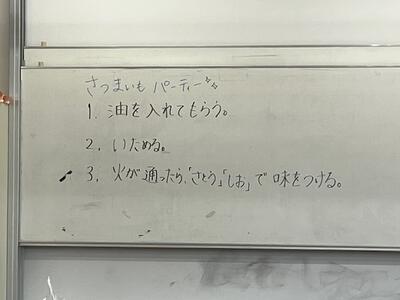 さつまいもパーティー
1. 油を入れてもらう。
2. いためる。
3. 火が通ったら、「さとう」「しお」で味をつける。